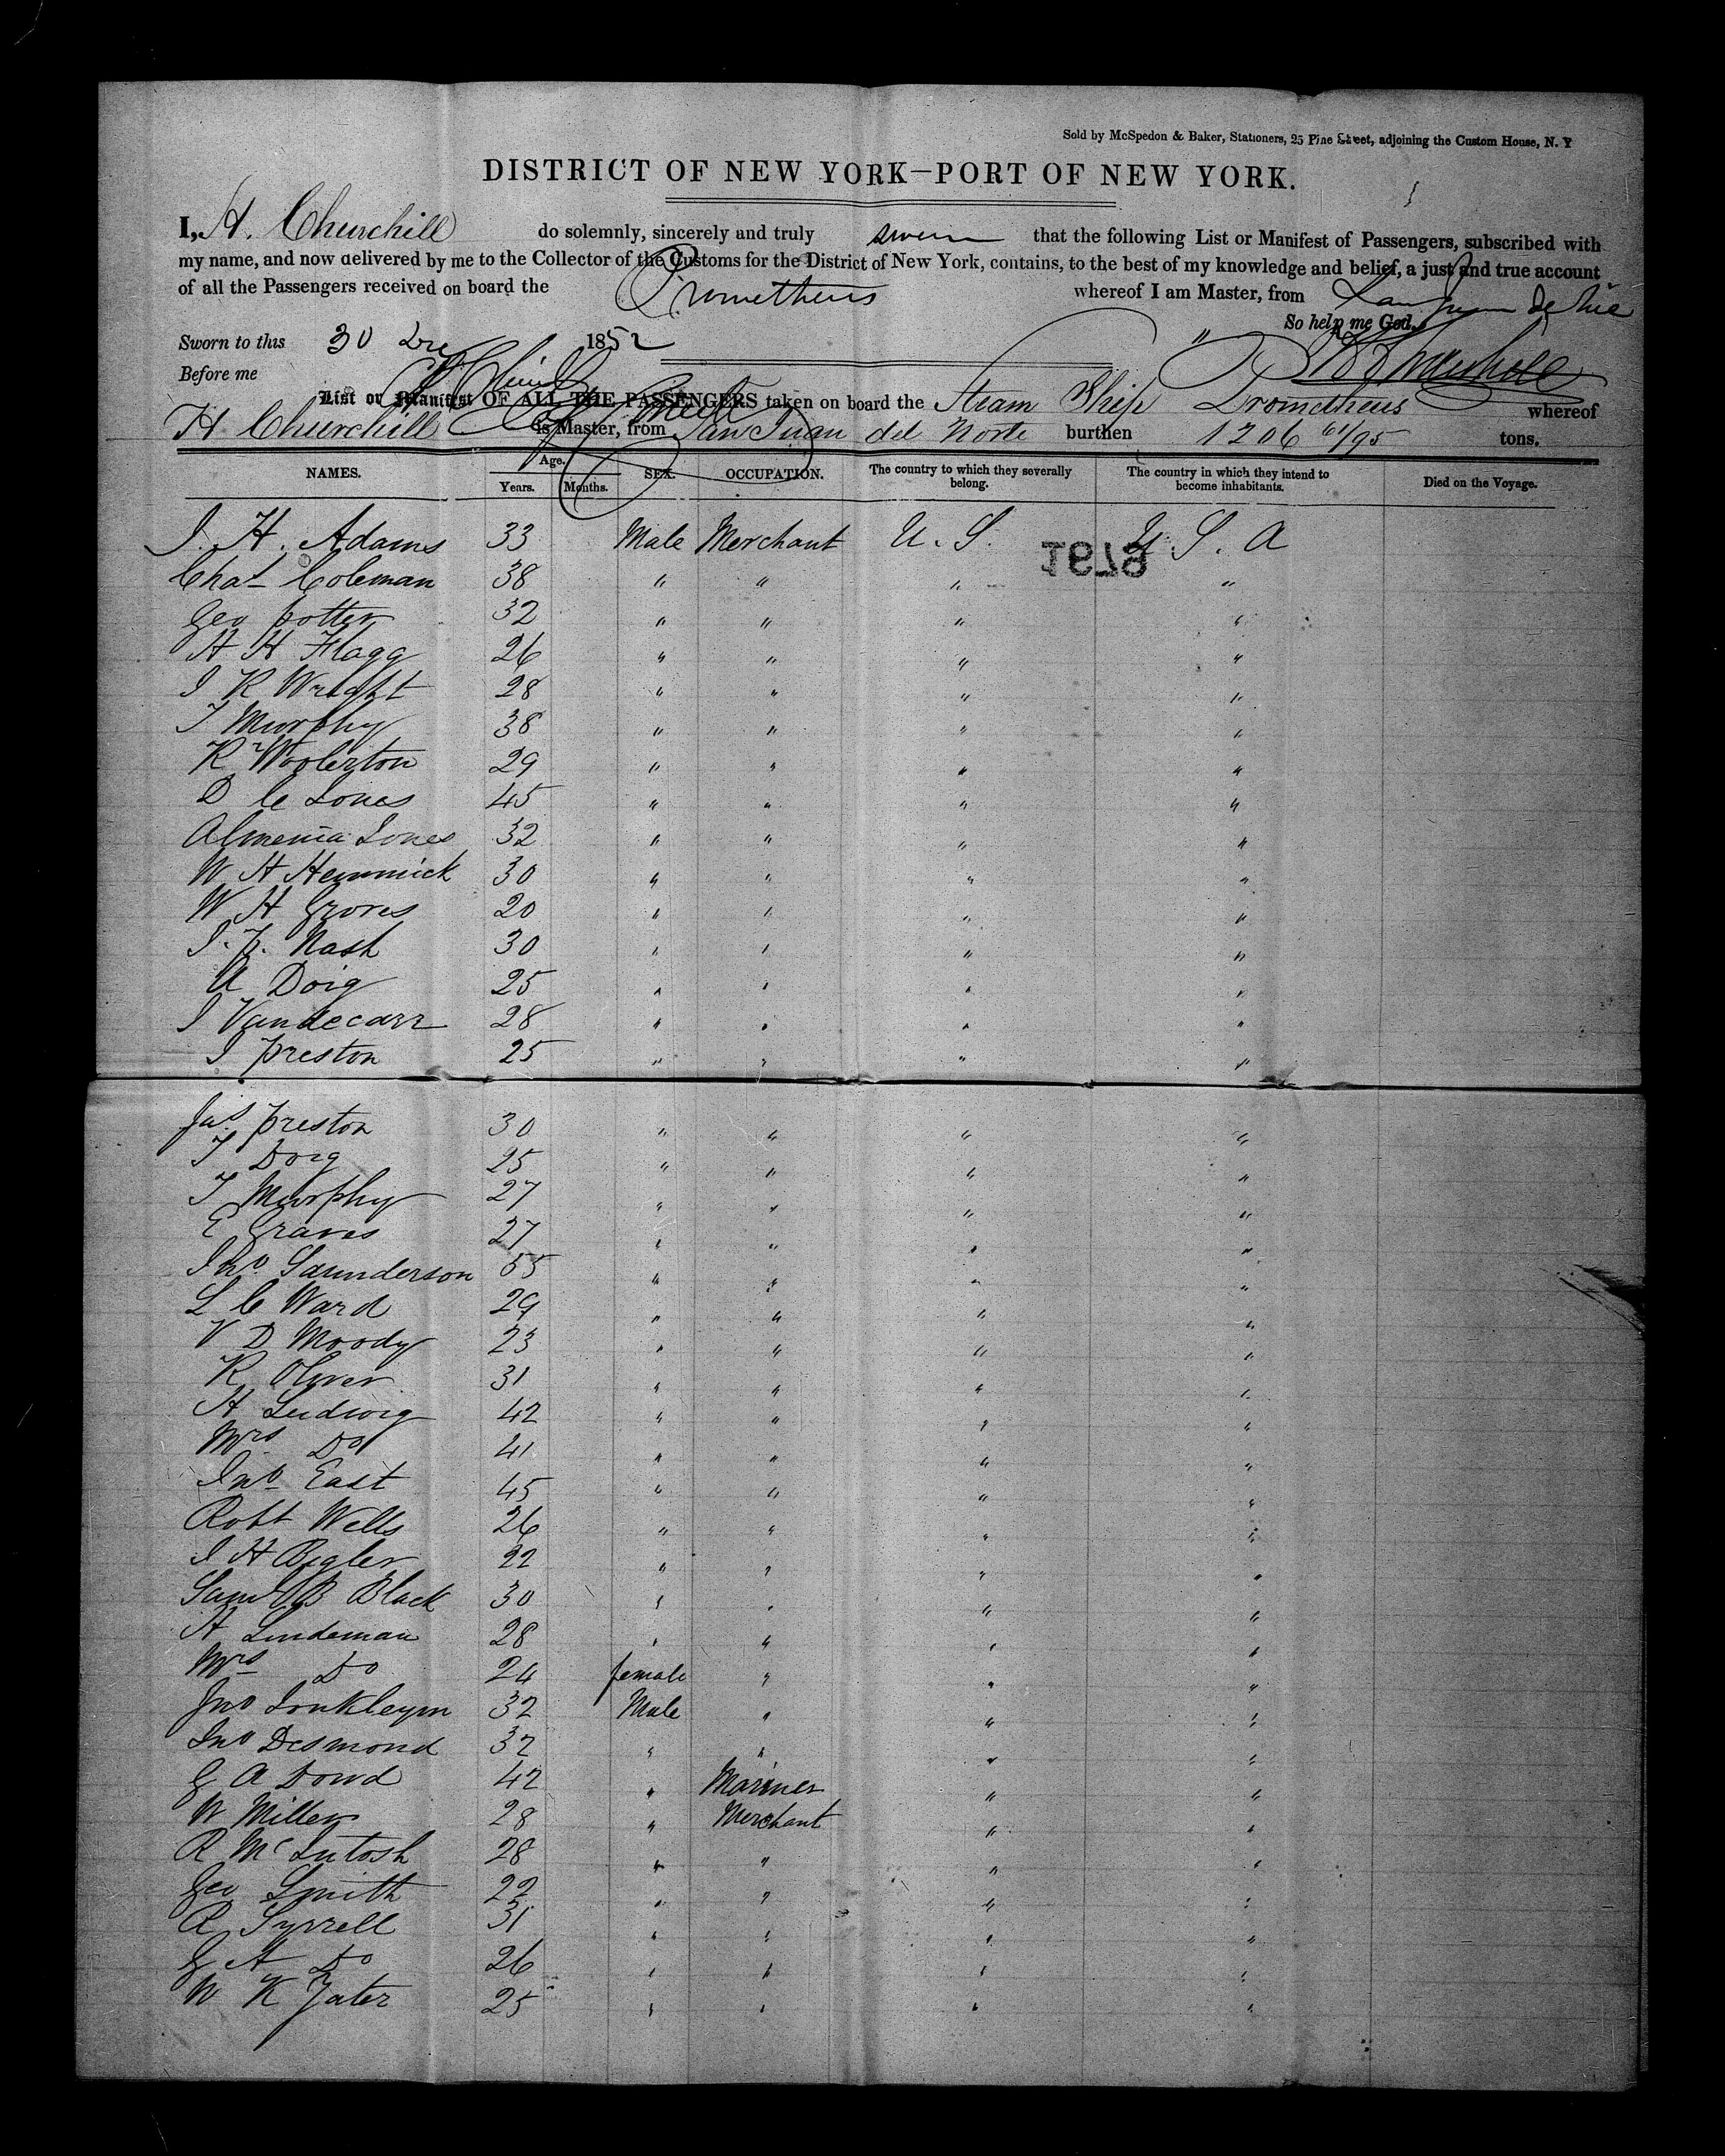 Sold by McSpedon & Baker, Stationers, 25 Pine Street, adjoining the Custom House, N. Y
DISTRICT OF NEW YORK—PORT OF NEW YORK.
I, H. Churchill do solemnly, sincerely and truly swear that the following List or Manifest of Passengers, subscribed with
my name, and now delivered by me to the Collector of the Customs for the District of New York, contains, to the best of my knowledge and belief, a just and true account
of all the Passengers received on board the Prometheus whereof I am Master, from San Juan de Nic
So help me God.
Sworn to this 30 Dec 1852 H Churchill
Before me
List or Manifest OF ALL THE PASSENGERS taken on board the Steam Ship Prometheus whereof
H Churchill is Master, from San Juan del Norte burthen 1206 61/95 tons.
NAMES. Age. Years. Months. SEX. OCCUPATION. The country to which they severally belong. The country in which they intend to become inhabitants. Died on the Voyage.
J. H. Adams 33 Male Merchant U. S. U. S. A
1678
Chas Coleman 38 " " " "
Geo Potter 32 " " " "
H H Flagg 26 " " " "
J R Wright 28 " " " "
T Murphy 38 " " " "
R Woolerton 29 " " " "
D C Jones 45 " " " "
Almenia Jones 32 " " " "
W H Hemmick 30 " " " "
W H Groves 20 " " " "
J. P. Nash 30 " " " "
A Doig 25 " " " "
J Vandecarr 28 " " " "
J Preston 25 " " " "
Jas. Preston 30 " " " "
T Doig 25 " " " "
T Murphy 27 " " " "
E Graves 27 " " " "
Jno. Saunderson 55 " " " "
L C Ward 29 " " " "
V D Moody 23 " " " "
R Oliver 31 " " " "
H Ludwig 42 " " " "
Mrs Do 41 " " " "
Jno East 45 " " " "
Robt Wells 26 " " " "
J H Bigler 22 " " " "
Saml B Black 30 " " " "
H Lindeman 28 " " " "
Mrs Do 24 female " " "
Jno 32 Male " " "
Jno Desmond 32 " " " "
G A Dowd 42 " Mariner " "
W Miller 28 " Merchant " "
R McIntosh 28 " " " "
Geo Smith 22 " " " "
R Tyrrell 31 " " " "
G A Do 26 " " " "
W K Yater 25 " " " "